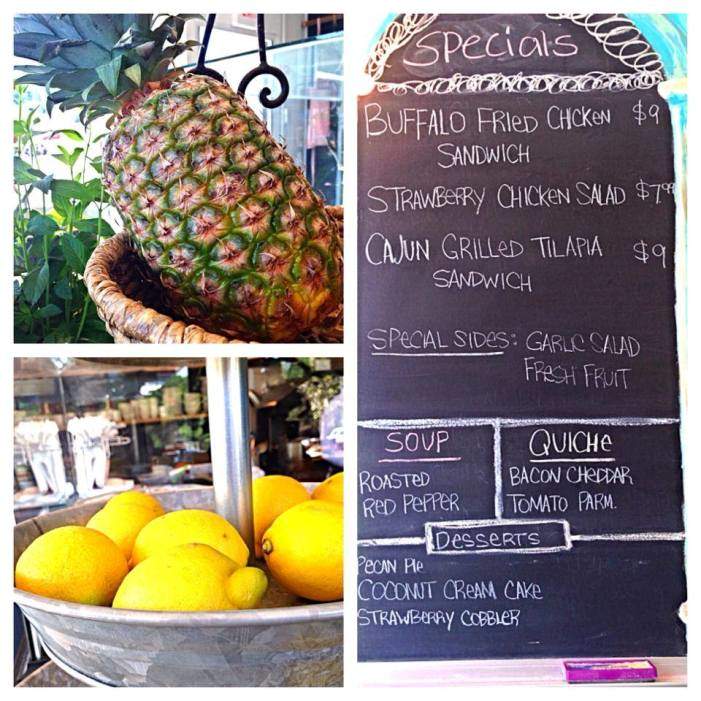 Specials
BUFFALO FRIED CHICKEN $9
SANDWICH
STRAWBERRY CHICKEN SALAD $7⁹⁹
CAJUN GRILLED TILAPIA $9
SANDWICH
SPECIAL SIDES: GARLIC SALAD
FRESH FRUIT
SOUP
ROASTED
RED PEPPER
QUICHE
BACON CHEDDAR
TOMATO PARM.
DESSERTS
PECAN PIE
COCONUT CREAM CAKE
STRAWBERRY COBBLER